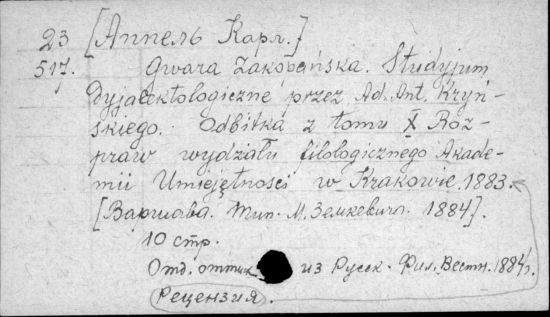 23 [Аппель Карл.]
517. Gwara Zakopańska. Studyjum
dyjalektologiczne przez Ad. Ant. Kryń-
skiego. Odbitka z tomu X Roz-
praw wydziału filologicznego Akade-
mii Umiejętności w Krakowie. 1883.
[Варшава. Тип. М. Земкевич. 1884].
10 стр.
Отд. оттиск из Русск. Фил. Вестн. 1884г.
Рецензия.